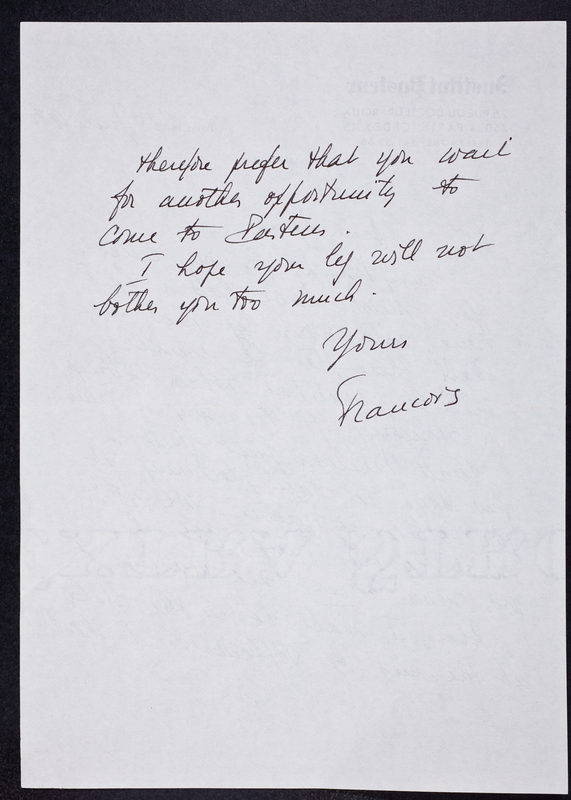 therefore prefer that you wait
for another opportunity to
come to Pasteur.
I hope your leg will not
bother you too much.
Yours
Francois